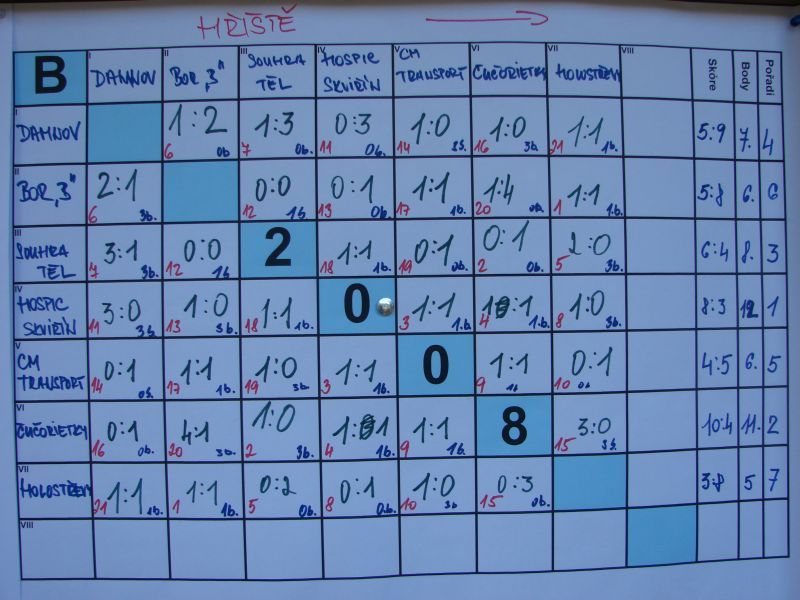 HŘIŠTĚ
B I DAMNOV II BOR „B" III SOUHRA TĚL IV HOSPIC SKVIŘÍN V CM TRANSPORT VI ČUČORIETKY VII HOLOSTŘEVY VIII Skóre Body Pořadí
I DAMNOV 1:2 6 0b 1:3 7 0b. 0:3 11 0b. 1:0 14 3b. 1:0 16 3b. 1:1 21 1b. 5:9 7. 4
II BOR „B" 2:1 6 3b. 0:0 12 1b 0:1 13 0b. 1:1 17 1b. 1:4 20 0b. 1:1 1 1.b. 5:8 6. 6
III SOUHRA TĚL 3:1 7 3b. 0:0 12 1b 2 1:1 18 1b. 0:1 19 0b. 0:1 2 0b. 2:0 5 3b. 6:4 8. 3
IV HOSPIC SKVIŘÍN 3:0 11 3b. 1:0 13 3b. 1:1 18 1b. 0 1:1 3 1.b. 1:1 4 1.b. 1:0 8 3b. 8:3 12. 1
V CM TRANSPORT 0:1 14 0b. 1:1 17 1b. 1:0 19 3b. 1:1 3 1b. 0 1:1 9 1b 0:1 10 0b 4:5 6. 5
VI ČUČORIETKY 0:1 16 0b. 4:1 20 3b. 1:0 2 3b. 1:1 4 1b. 1:1 9 1b. 8 3:0 15 3b. 10:4 11. 2
VII HOLOSTŘEVY 1:1 21 1b. 1:1 1 1b. 0:2 5 0b. 0:1 8 0.b. 1:0 10 3b 0:3 15 0b. 3:8 5 7
VIII